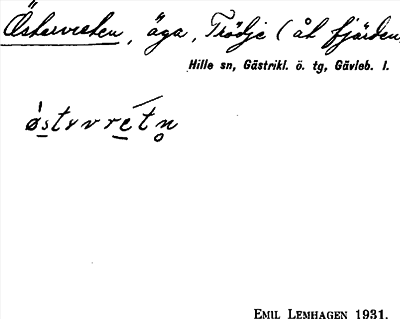 Östervreten, äga, Trödje (åt fjärden,
Hille sn, Gästrikl. ö. tg, Gävleb. l.
østvvretn
EMIL LEMHAGEN 1931.